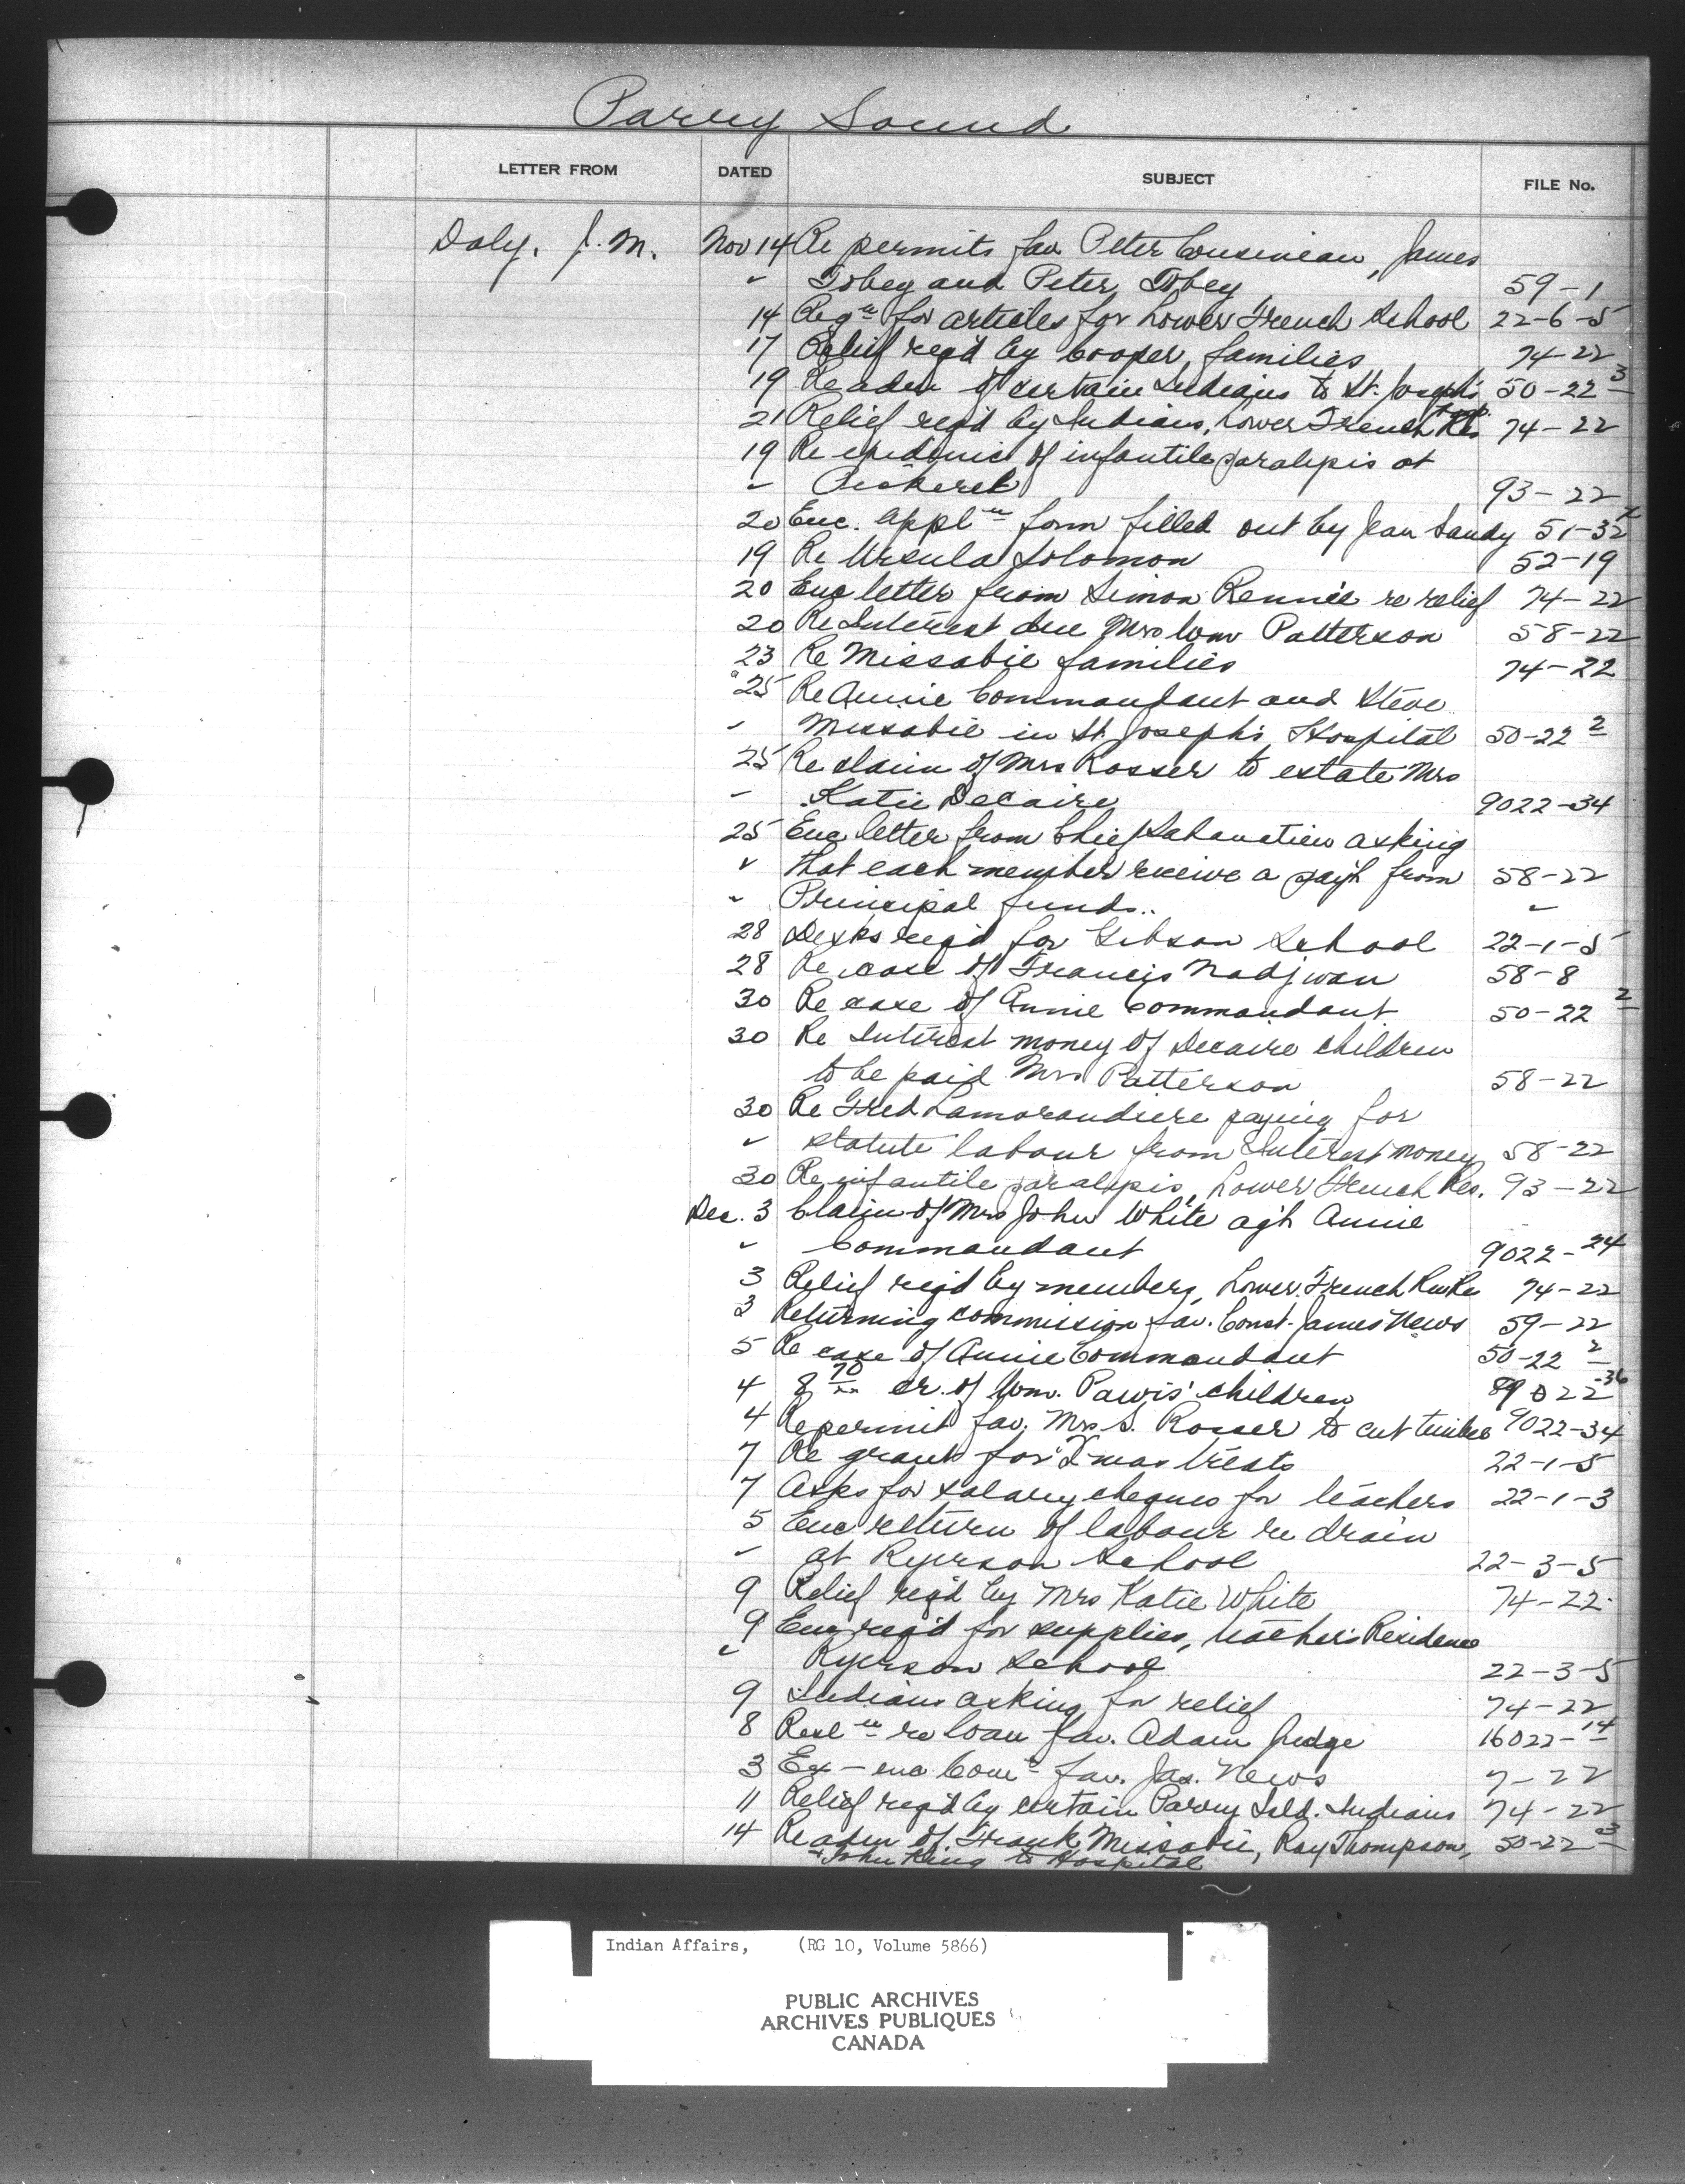 Parry Sound
LETTER FROM DATED SUBJECT FILE No.
Daly, J. M. Nov 14 Re permits fav Peter Cousineau, James
" Tobey and Peter Tobey 59-1
14 Reqn for articles for Lower French School 22-6-5
17 Relief reqd by Cooper families 74-22
19 Re adm of certain Indians to St. Joseph's Hosp. 50-22 3
21 Relief reqd by Indians, Lower French Res 74-22
19 Re epidemic of infantile paralysis at
" Pickerel 93-22
20 Enc. appln form filled out by Jean Sandy 51-32
19 Re Ursula Solomon 52-19
20 Enc letter from Simon Rennie re relief 74-22
20 Re Interest due Mrs Wm Patterson 58-22
23 Re Missabie families 74-22
25 Re Annie Commandant and Steve
" Missabie in St Joseph's Hospital 50-22 2
25 Re claim of Mrs Rosser to estate Mrs
" Katie Decaire 9022-34
25 Enc letter from Chief asking
" that each member receive a pay't from 58-22
" Principal funds.. "
28 Desks reqd for Gibson School 22-1-5
28 Re case of Francis Nadjiwan 58-8
30 Re case of Annie Commandant 50-22 2
30 Re Interest money of Decaire children
to be paid Mrs Patterson 58-22
30 Re Fred Lamorandiere paying for
" statute labour from Interest money 58-22
30 Re infantile paralysis, Lower French Res. 93-22
Dec. 3 Claim of Mrs John White ag't Annie
" Commandant 9022-24
3 Relief reqd by members, Lower French Riv Re 74-22
3 Returning commission fav. Const. James News 59-22
5 Re case of Annie Commandant 50-22 2
4 8 70/xx cr. of Wm. Pawis' children 89022-36
4 Re permit fav. Mrs. S. Rosser to cut timber 9022-34
7 Re grant for Xmas treats 22-1-5
7 Asks for salary cheques for teachers 22-1-3
5 Enc return of labour re drain
" at Ryerson School 22-3-5
9 Relief reqd by Mrs Katie White 74-22
9 Enc reqd for supplies, teacher's Residence
" Ryerson School 22-3-5
9 Indians asking for relief 74-22
8 Resln re loan fav. Adam Judge 16022-14
3 Ex - enc Comn fav. Jas. News 7-22
11 Relief reqd by certain Parry Isld. Indians 74-22
14 Re adm of Frank Missabie, Ray Thompson, 50-22 3
+ John King to Hospital
Indian Affairs, (RG 10, Volume 5866)
PUBLIC ARCHIVES
ARCHIVES PUBLIQUES
CANADA